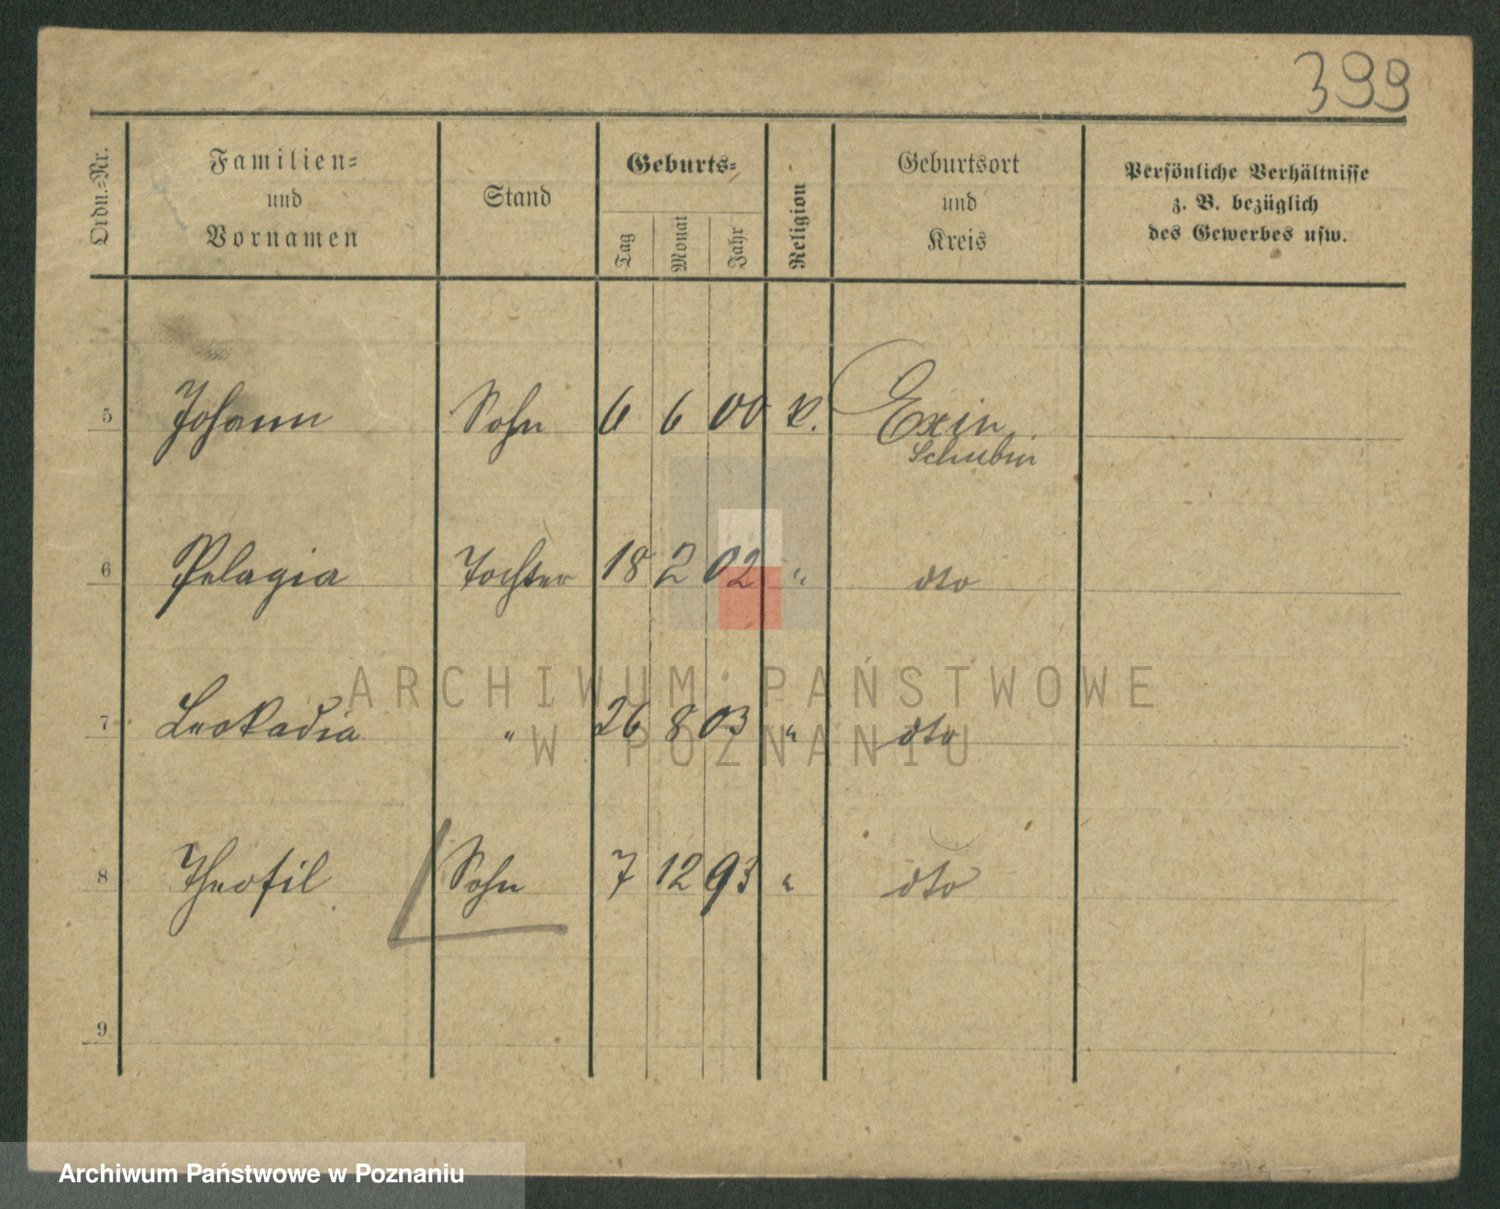 399
Ordn.=Nr. Familien= und Vornamen Stand Geburts= Tag Monat Jahr Religion Geburtsort und Kreis Persönliche Verhältnisse z. B. bezüglich des Gewerbes usw.
5 Johann Sohn 6 6 00 k. Exin
Schubin
6 Pelagia Tochter 18 2 02 " dto
ARCHIWUM PAŃSTWOWE
7 Leokadia " 26 8 03 " dto
W POZNANIU
8 Theofil Sohn 7 12 93 " dto
9
Archiwum Państwowe w Poznaniu